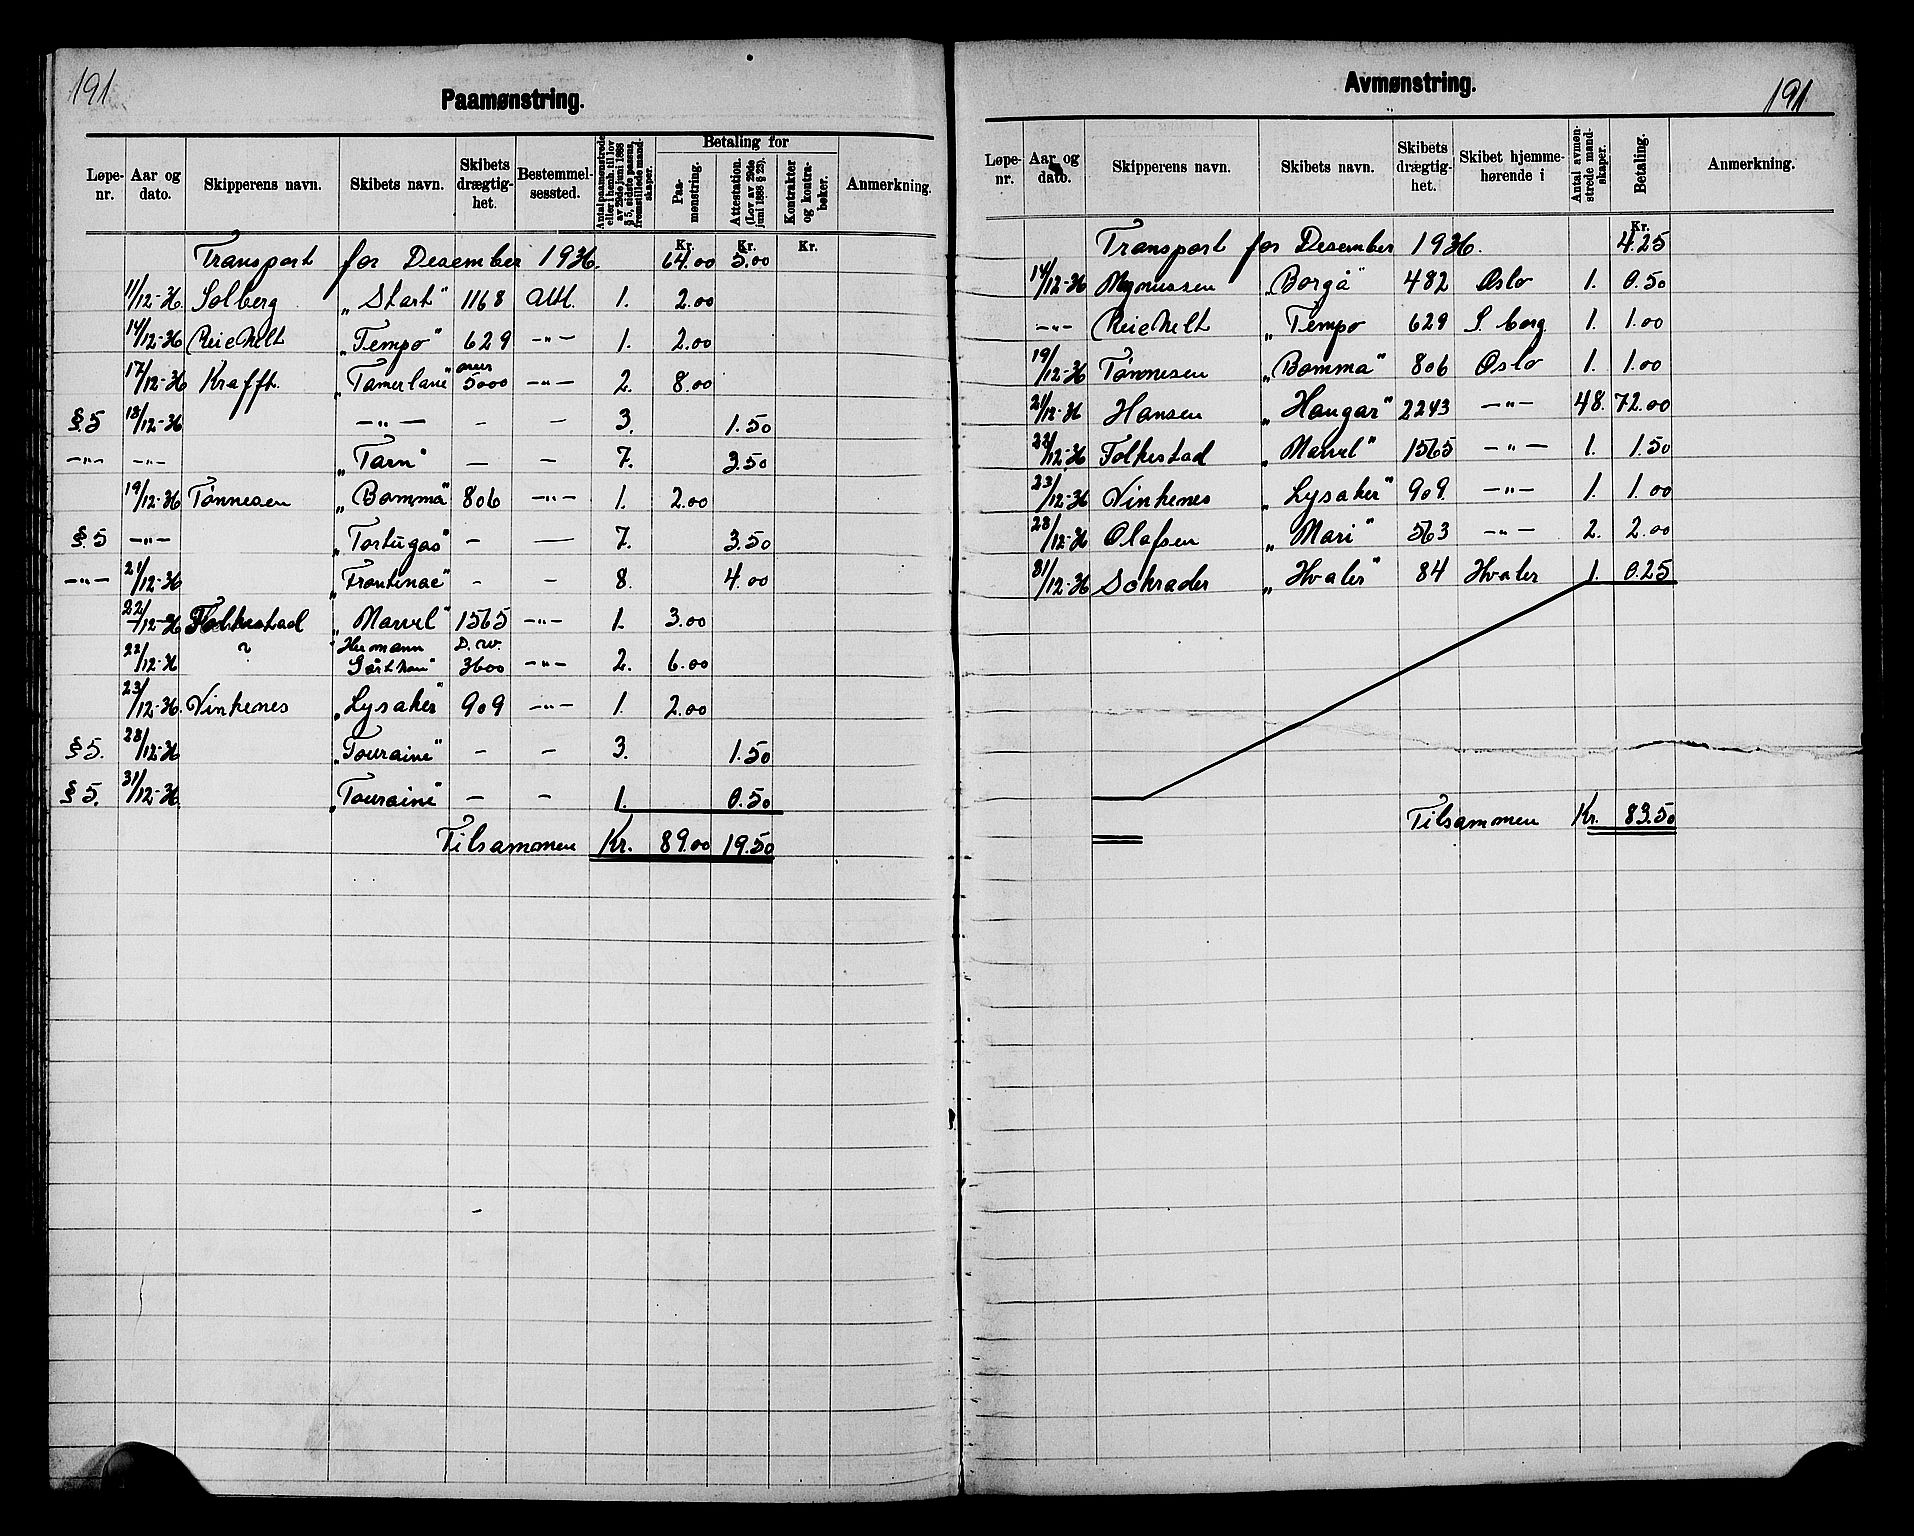 191
Paamønstring.
Løpe-nr. | Aar og dato. | Skipperens navn. | Skibets navn. | Skibets drægtig-het. | Bestemmel-sessted. | Antal paamønstrede eller i henh. til lov av 29de juni 1888 § 5, sidste passus, fremstillede mand-skaper. | Betaling for | Paa-mønstring. | Attestation. (Lov av 29de juni 1888 § 23). | Kontrakter og kontra-bøker. | Anmerkning.
Kr. Kr. Kr.
Transport for Desember 1936. 64.00 5.00
11/12-36 Solberg „Start" 1168 Atl. 1. 2.00
14/12-36 Reichelt „Tempo" 629 —"— 1. 2.00
17/12-36 Krafft. „Tamerlane" over 5000 —"— 2. 8.00
§5 18/12-36 —"— - — 3. 1.50
—"— —"— „Tarn" — — 7. 3.50
19/12-36 Tønnesen „Bomma" 806 —"— 1. 2.00
§5 —"— „Tortugas" - — 7. 3.50
—"— 21/12-36 „Frontenac" - — 8. 4.00
22/12-36 Folkestad „Marvel" 1565 —"— 1. 3.00
22/12-36 ? "Hermann D.w.
3600 —"— 2. 6.00
23/12-36. Vinkenes „Lysaker" 909 —"— 1. 2.00
§5. 28/12-36 „Touraine" - — 3. 1.50
§5. 31/12-36 „Touraine" — — 1. 0.50
Tilsammen Kr. 89.00 19.50
Avmønstring.
191
Løpe-nr. | Aar og dato. | Skipperens navn. | Skibets navn. | Skibets drægtig-het. | Skibet hjemme-hørende i | Antal avmøn-strede mand-skaper. | Betaling. | Anmerkning.
Kr.
Transport for Desember 1936. 4.25
14/12-36 Magnussen „Borgå" 482 Oslo 1. 0.50
—"— Reichelt „Tempo 629 S. borg 1. 1.00
19/12-36 Tønnesen „Bomma" 806 Oslo 1. 1.00
21/12-36 Hansen „Haugar" 2243 —"— 48. 72.00
22/12-36 Folkestad „Marvel" 1565 —"— 1. 1.50
23/12-36 Vinkenes „Lysaker" 909. —"— 1. 1.00
28/12-36 Olafsen „Mari" 563 —"— 2. 2.00
31/12-36 Schrader „Hvaler" 84 Hvaler 1. 0.25
Tilsammen Kr. 83.50